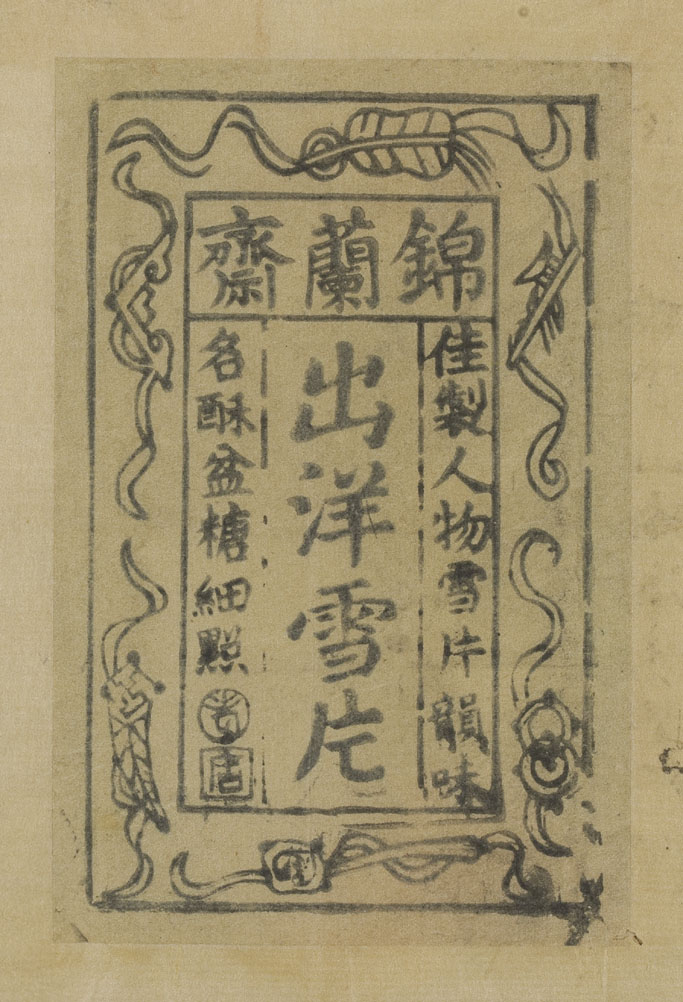 錦蘭齋
佳製人物雪片韻味
出洋雪片
名酥盆糖細點